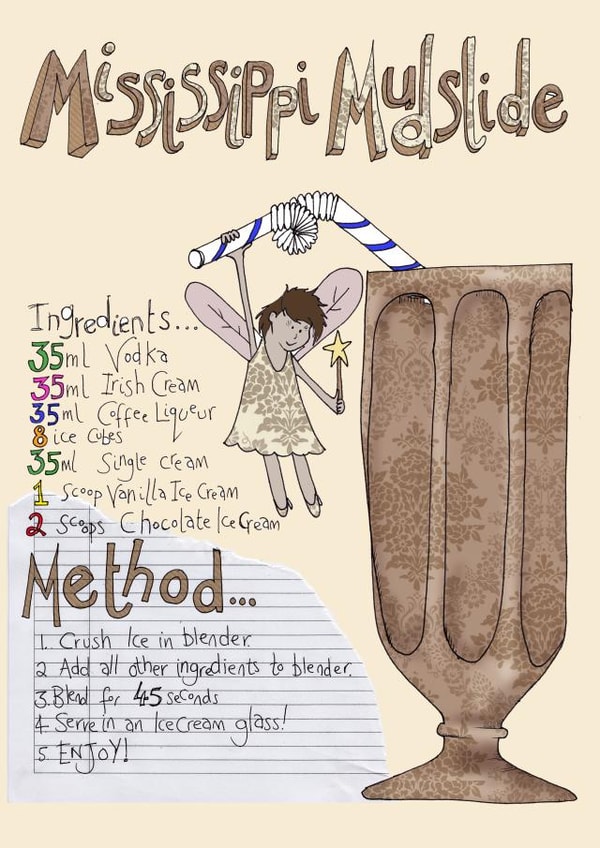 Mississippi Mudslide
Ingredients...
35ml Vodka
35ml Irish Cream
35ml Coffee Liqueur
8 ice cubes
35ml Single cream
1 Scoop Vanilla Ice Cream
2 Scoops Chocolate Ice Cream
Method...
1. Crush Ice in blender.
2 Add all other ingredients to blender.
3. Blend for 45 seconds
4. Serve in an Ice Cream glass!
5. ENJOY!